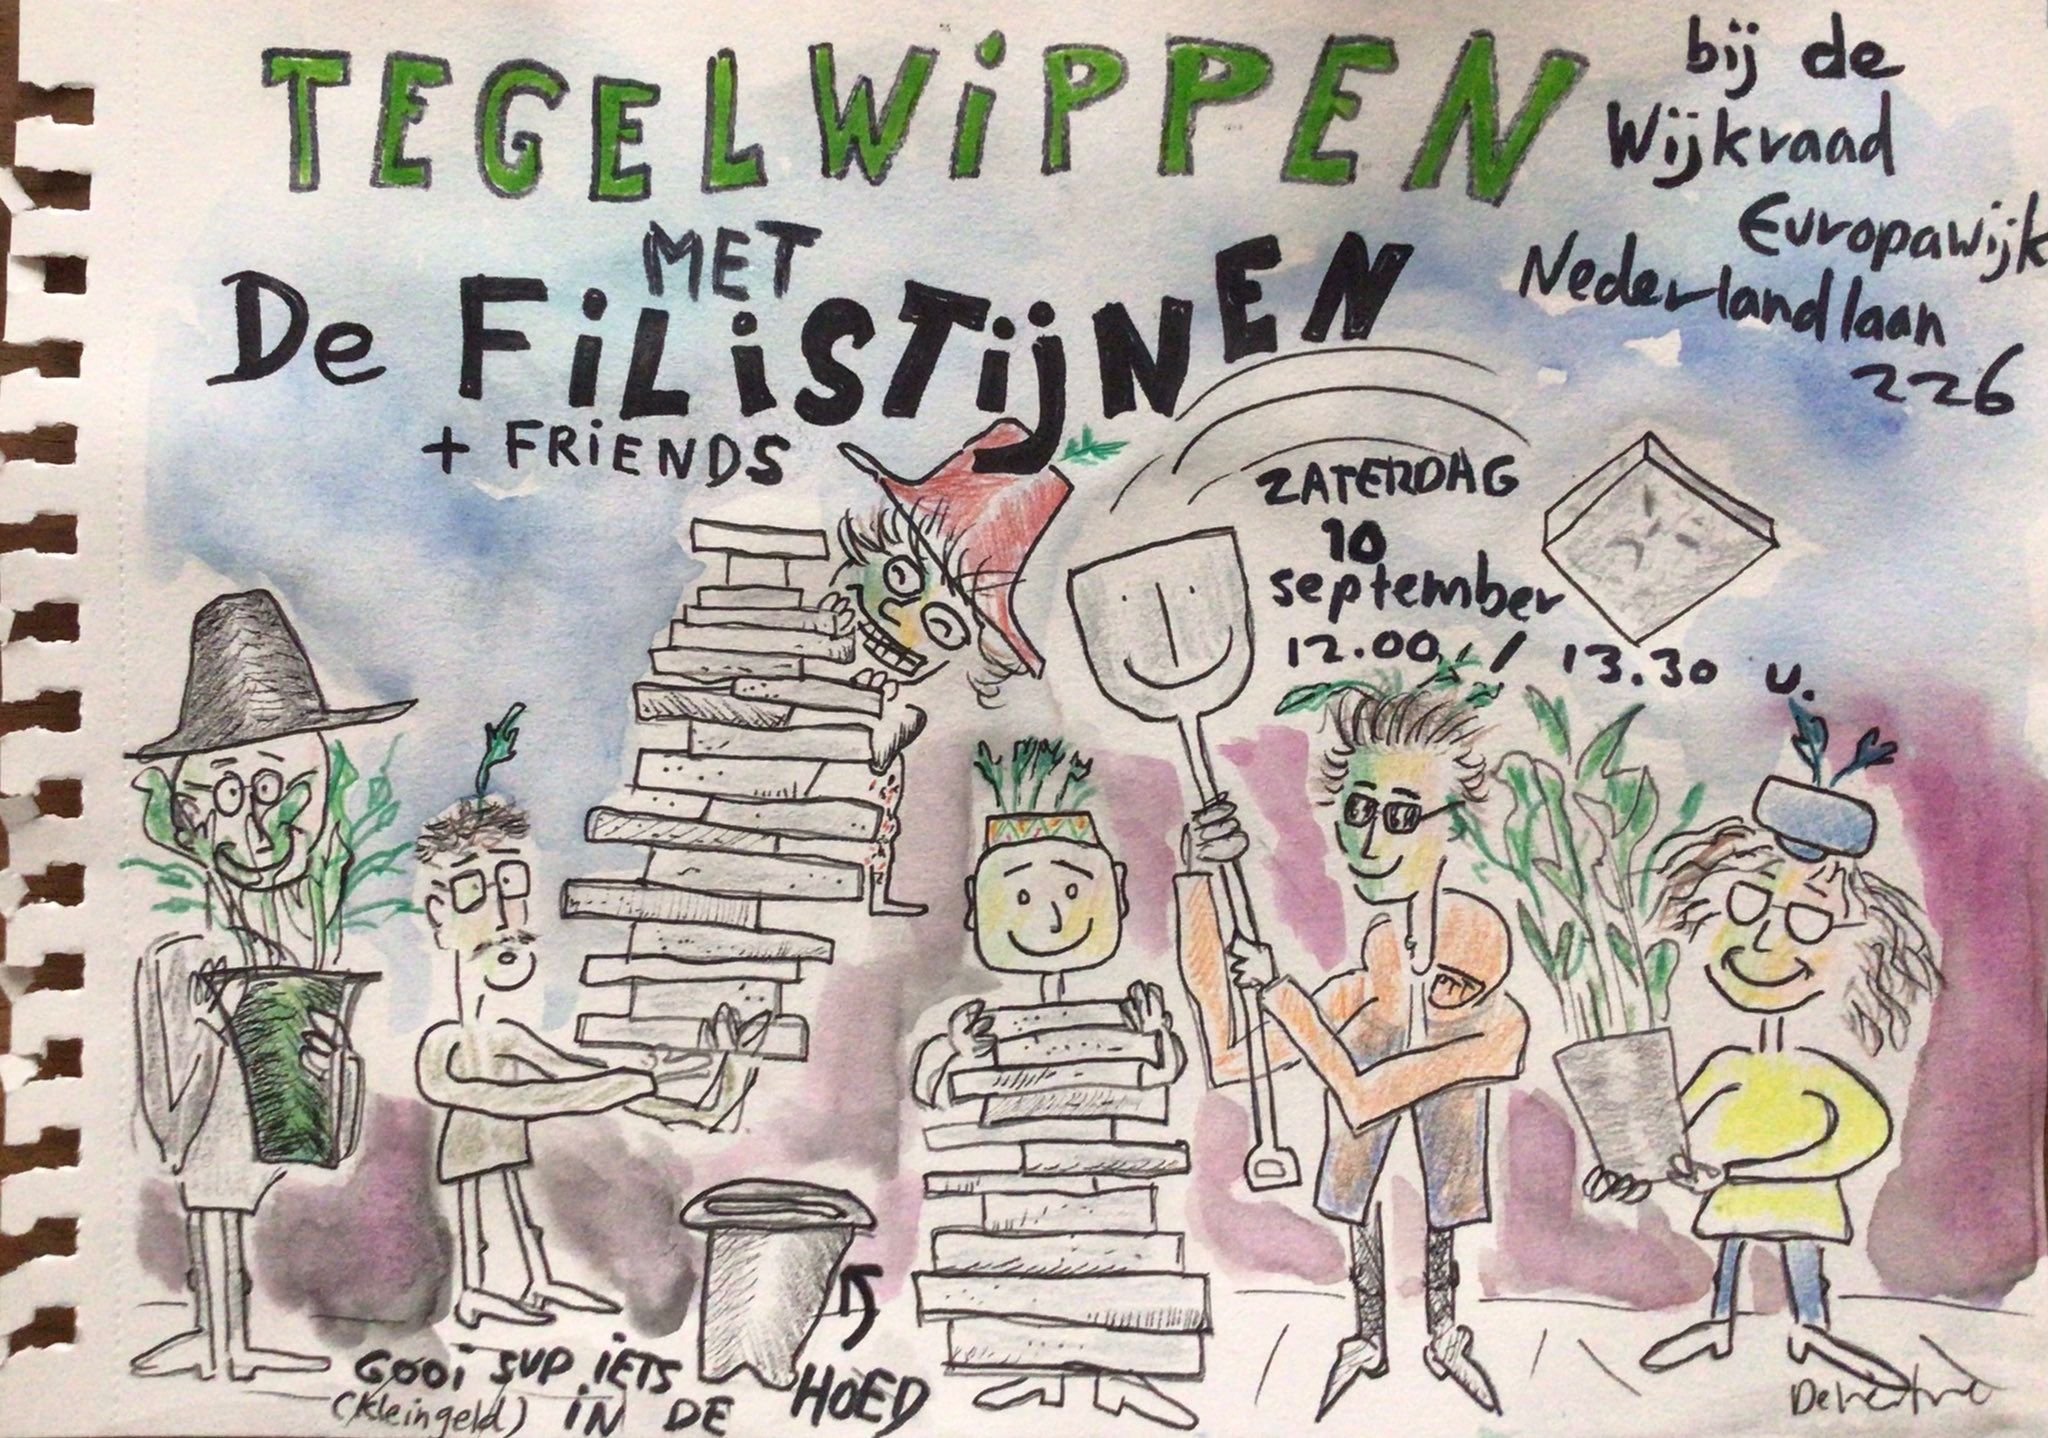 TEGELWiPPEN
MET
De FiLiSTijNEN
+ FRiENDS
bij de
Wijkraad
Europawijk
Nederlandlaan
226
ZATERDAG
10
september
12.00 / 13.30 u.
GOOi SVP iETS
(kleingeld) iN DE HOED